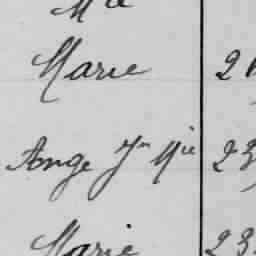 Mie
Marie 2
Ange Jn Mie 23
Marie 23